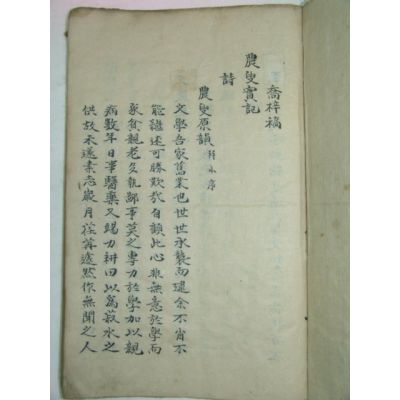 喬梓稿
農叟實記
詩
農叟原韻 幷小序
文學吾家舊業也世世承襲而逮余不肖不
能繼述可勝歎哉自顧此心非無意於學而
家貧親老久執鄙事莫之專力於學加以親
病數年日事醫藥又竭力耕田以爲菽水之
供故未遂素志歲月荏苒遽然作無聞之人